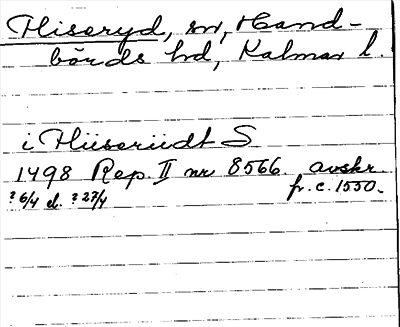 Hiseryd, sn, Hand-
börds hd, Kalmar l.
i Hiiseriidt S
1498 Rep. II nr 8566. avskr.
? 6/4 el. ? 27/4 fr. c. 1550.